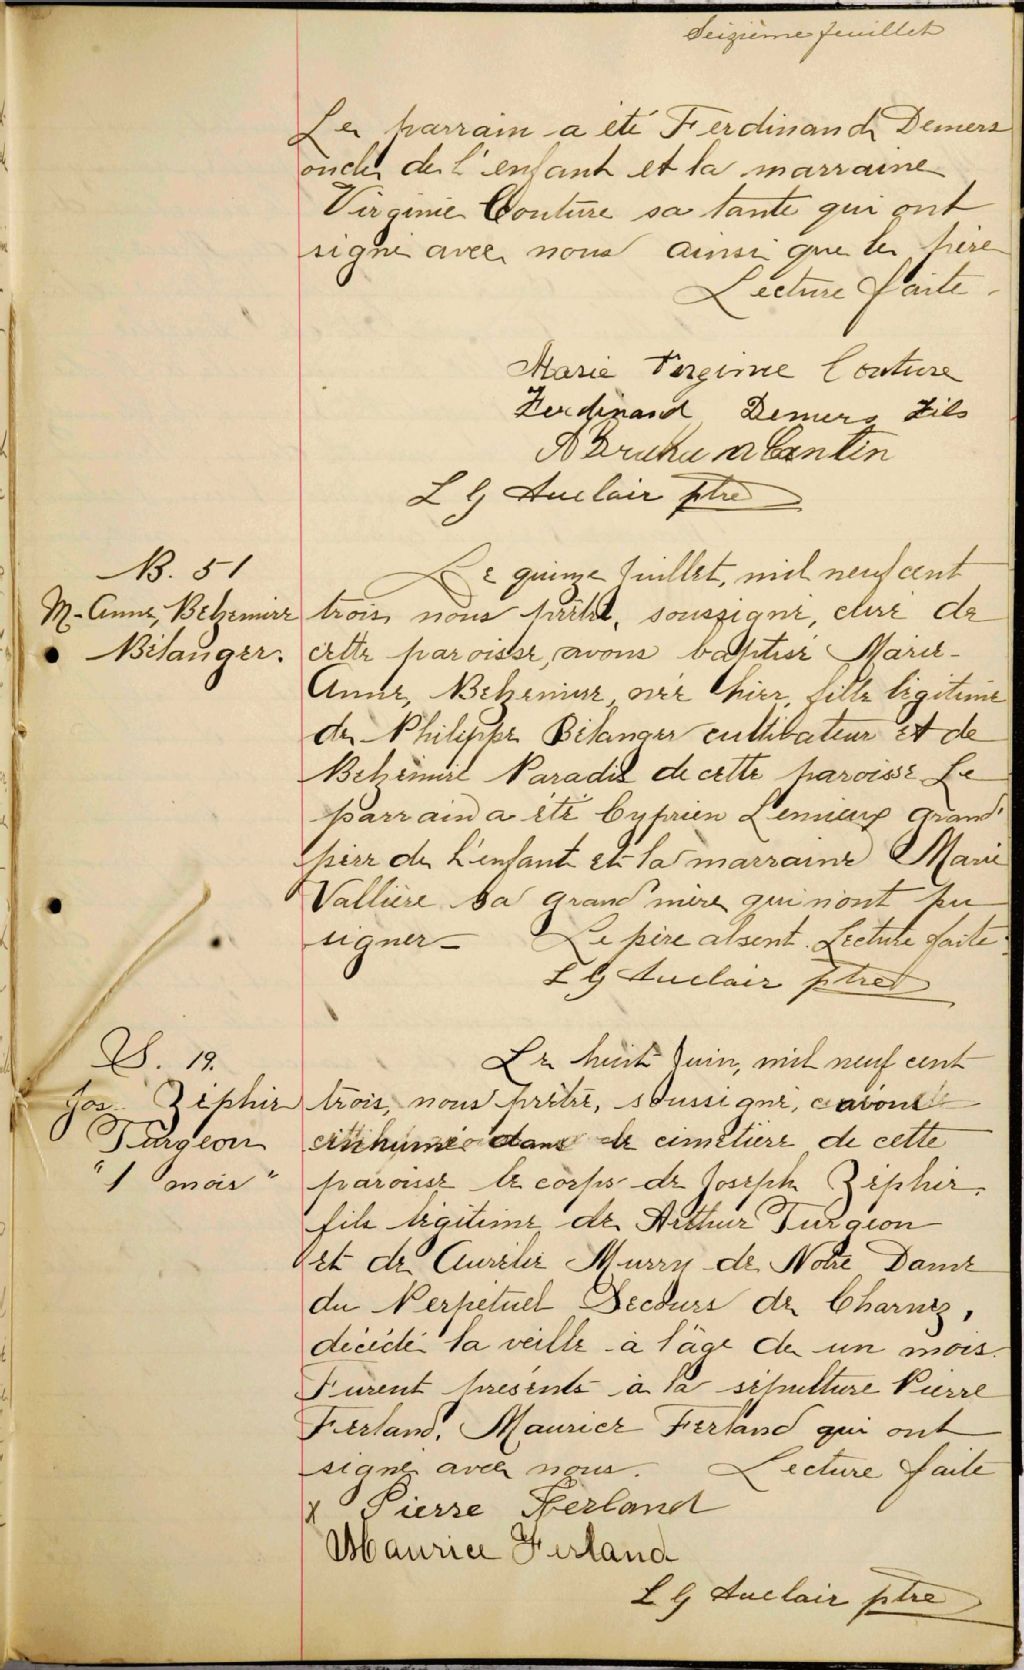 Seizième feuillet
Le parrain a été Ferdinand Demers
oncle de l'enfant et la marraine
Virginie Couture sa tante qui ont
signé avec nous ainsi que le père
Lecture faite.
Marie Virginie Couture
Ferdinand Demers Fils
Cantin
L G Auclair ptre
B. 51
M-Anne, Bezemire
Bélanger.
Le quinze Juillet, mil neuf cent
trois, nous prêtre, soussigné, curé de
cette paroisse, avons baptisé Marie-
Anne, Bezemire, née hier, fille légitime
de Philippe Bélanger cultivateur et de
Bezémire Paradis de cette paroisse Le
parrain a été Cyprien Lemieux grand'
père de l'enfant et la marraine Marie
Vallière sa grand'mère qui n'ont pu
signer - Le père absent. Lecture faite.
L G Auclair ptre
S. 19.
Jos. Zéphir
Turgeon
"1 mois"
Le huit Juin, mil neuf cent
trois, nous prêtre, soussigné, avons
inhumé dans le cimetière de cette
paroisse le corps de Joseph Zéphir,
fils légitime de Arthur Turgeon
et de Aurélie Murry de Notre Dame
du Perpétuel Secours de Charny,
décédé la veille à l'âge de un mois.
Furent présents à la sépulture Pierre
Ferland, Maurice Ferland qui ont
signé avec nous. Lecture faite
x Pierre Ferland
Maurice Ferland
L G Auclair ptre